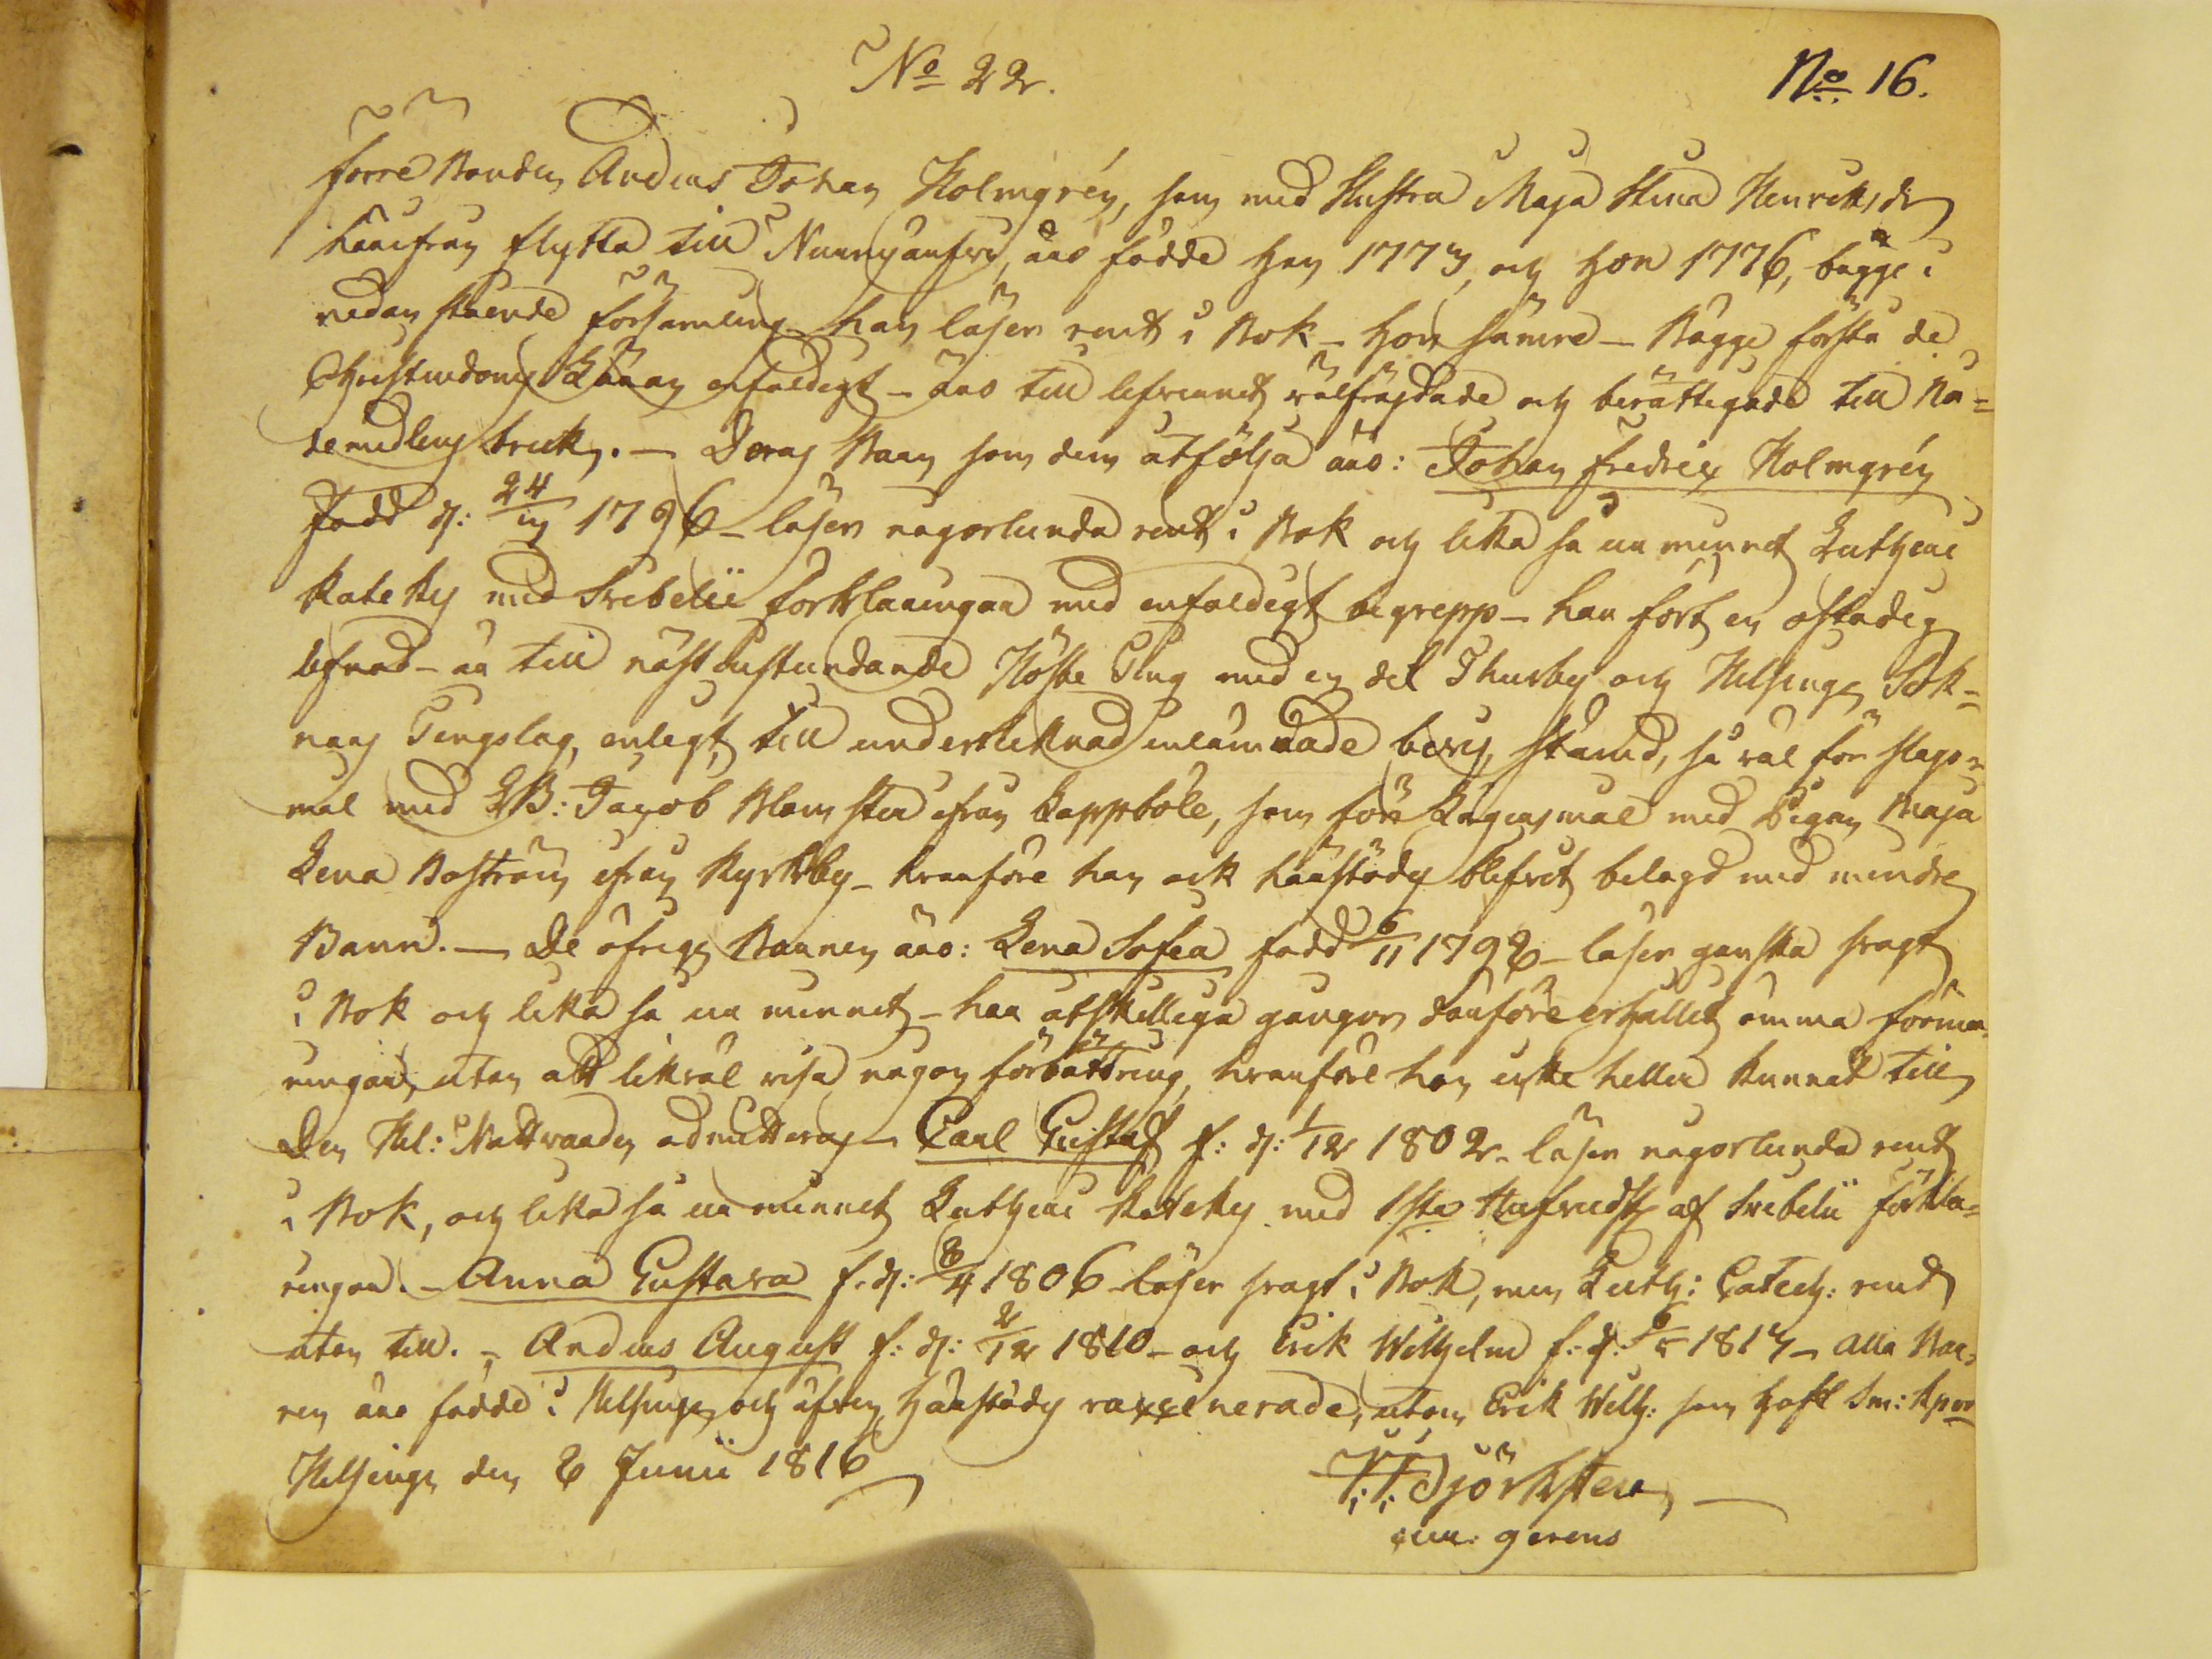 No 22.
No 16.
Förre Bonden Anders Johan Holmgrén, som med Hustru Maja Stina Henriksdr
härifrån flytta till Nummijärfvi, äro födde han 1773, och hon 1776, bägge i
nedanstående församling han läser rent i Bok – hon sämre – Bägge förstå de
Christendoms Läran enfaldigt – äro till lefvernet välfräjdade och berättigade till Nå-
demedlens bruk. – Deras Barn som dem åtfölja äro: Johan Fredric Holmgrén
född d: 24/ 1796 – läser någorlunda rent i Bok och lika så ur minnet Lutheri
Kateches med Svebelii förklaringar med enfaldigt begrepp – har fört en ostadig
lefnad – är till näst instundande Höste Ting med en del Thusby och Helsinge Sok-
nars Tingslag, enligt till undertecknad inlämnade bevis, stämd, så väl för slags-
mål med LB: Jacob Blomster ifrån Kappböle, som för Lägersmål med Pigan Maja
Lena Boström ifrån Kyrkby – hvarföre han ock härstädes blifvit belagd med mindre
Bann. – De öfrige Barnen äro: Lena Sofia född 6/11 1798 – läser ganska svagt
i Bok och lika så ur minnet – har åtskilliga gånger därföre erhållit ömma förma-
ningar, utan att likväl visa någon förbättring, hvarföre hon icke heller kunnat till
Den Hel: Nattvarden admitteras – Carl Gustaf f: d: 1/12 1802 – läser någorlunda rent
i Bok, och lika så ur minnet Lutheri Kateches med 1sta Hufvudst af Svebelii förkla-
ringar. – Anna Gustava f. d: 8/4 1806 – läser svagt i Bok, men Luth: Catech: rent
utan till. – Anders August f: d: 2/12 1810 – och Erik Wilhelm f: d: 1813 – Alla Bar-
nen äro födde i Helsinge och äfven härstädes vaccinerade, utom Erik Wilh: som haft Sm: kpor
Helsinge den 6 Junii 1816
Björksten
cur: gerens